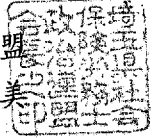 埼玉県社会
保険労務士
政治連盟
会長之印
盟美